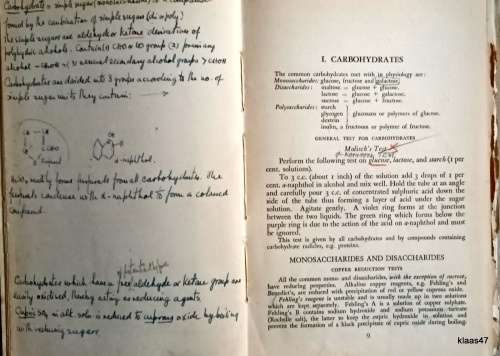 Carbohydrate = simple sugar (monosaccharides) or a compound
formed by the combination of simple sugars (di or poly)
The simple sugars are aldehyde or ketone derivatives of
polyhydric alcohols. Contain(s) CHO or CO group (2) primary
alcohol
Carbohydrates are divided into 3 groups according to the no. of
simple sugar units they contain: →
furfural
α-naphthol.
H₂SO₄ readily forms furfurals from all carbohydrates. The
furfurals condense with α-naphthol to form a coloured
compound.
Carbohydrates which have a free aldehyde or ketone group are
easily oxidised, thereby acting as reducing agents.
Cupric in alk. soln is reduced to cuprous oxide by boiling
with reducing sugars.
I. CARBOHYDRATES
The common carbohydrates met with in physiology are:
Monosaccharides: glucose, fructose and galactose.
Disaccharides: maltose = glucose + glucose.
lactose = glucose + galactose.
sucrose = glucose + fructose.
Polysaccharides: starch
glycogen } glucosans or polymers of glucose.
dextrin
inulin, a fructosan or polymer of fructose.
GENERAL TEST FOR CARBOHYDRATES
Molisch's Test
Perform the following test on glucose, lactose, and starch (1 per
cent. solutions).
To 3 c.c. (about 1 inch) of the solution add 3 drops of 1 per
cent. α-naphthol in alcohol and mix well. Hold the tube at an
angle and carefully pour 3 c.c. of concentrated sulphuric acid down the
side of the tube thus forming a layer of acid under the sugar
solution. Agitate gently. A violet ring forms at the junction
between the two liquids. The green ring which forms below the
purple ring is due to the action of the acid on α-naphthol and must
be ignored.
This test is given by all carbohydrates and by compounds containing
carbohydrate radicles, e.g. proteins.
MONOSACCHARIDES AND DISACCHARIDES
COPPER REDUCTION TESTS
All the common mono- and disaccharides, with the exception of sucrose,
have reducing properties. Alkaline copper reagents, e.g. Fehling's and
Benedict's, are reduced with precipitation of red or yellow cuprous oxide.
Fehling's reagent is unstable and is usually made up in two solutions
which are kept separately. Fehling's A is a solution of copper sulphate.
Fehling's B contains sodium hydroxide and sodium potassium tartrate
(Rochelle salt), the latter to keep the cupric hydroxide in solution and
prevent the formation of a black precipitate of cupric oxide during boiling.
9
klaas47